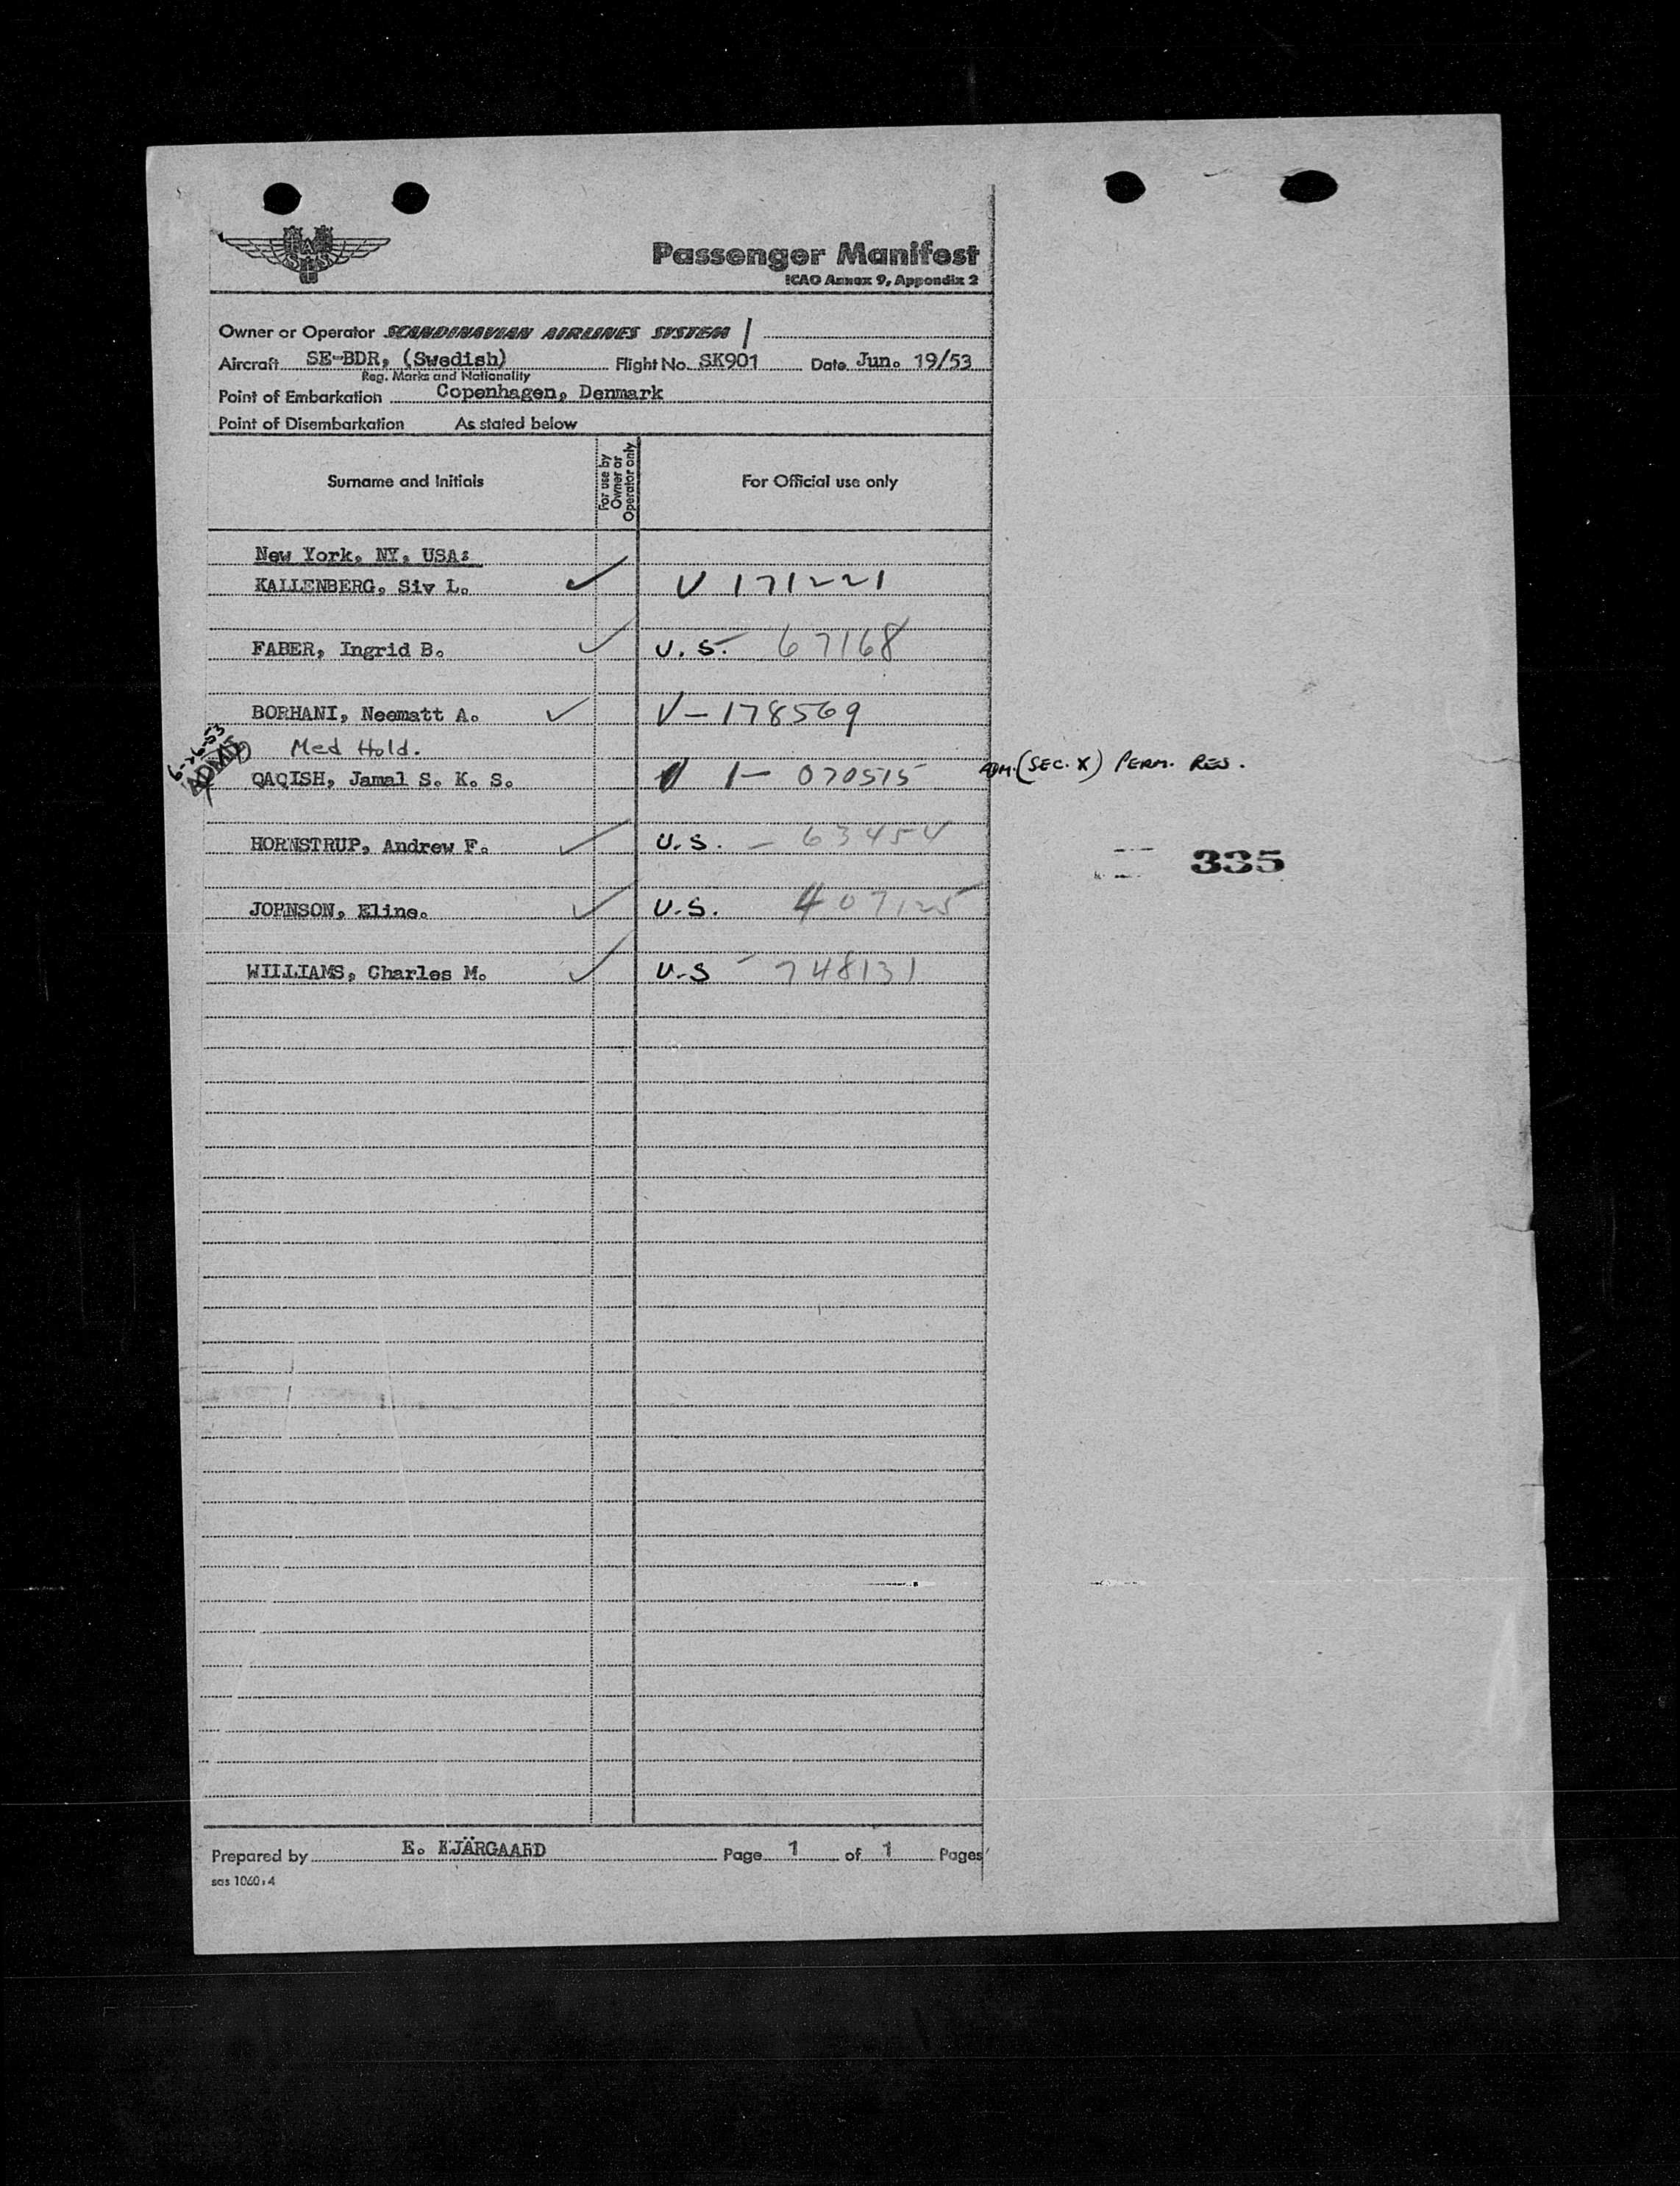 SAS
Passenger Manifest
ICAO Annex 9, Appendix 2
Owner or Operator SCANDINAVIAN AIRLINES SYSTEM /
Aircraft SE-BDR, (Swedish) Flight No. SK901 Date Jun. 19/53
Reg. Marks and Nationality
Point of Embarkation Copenhagen, Denmark
Point of Disembarkation As stated below
Surname and Initials For use by Owner or Operator only For Official use only
New York, NY, USA:
KALLENBERG, Siv L. ✓ V 171221
FABER, Ingrid B. ✓ U.S. 67168
BORHANI, Neematt A. ✓ V-178569
6-26-53 ADMD Med Hold.
QAQISH, Jamal S. K. S. I- 070515 ADM. (SEC. X) PERM. RES.
HORNSTRUP, Andrew F. ✓ U.S. - 63454
335
JOHNSON, Eline. ✓ U.S. 407125
WILLIAMS, Charles M. ✓ U.S - 748131
Prepared by E. KJÄRGAARD Page 1 of 1 Pages
sas 1060:4